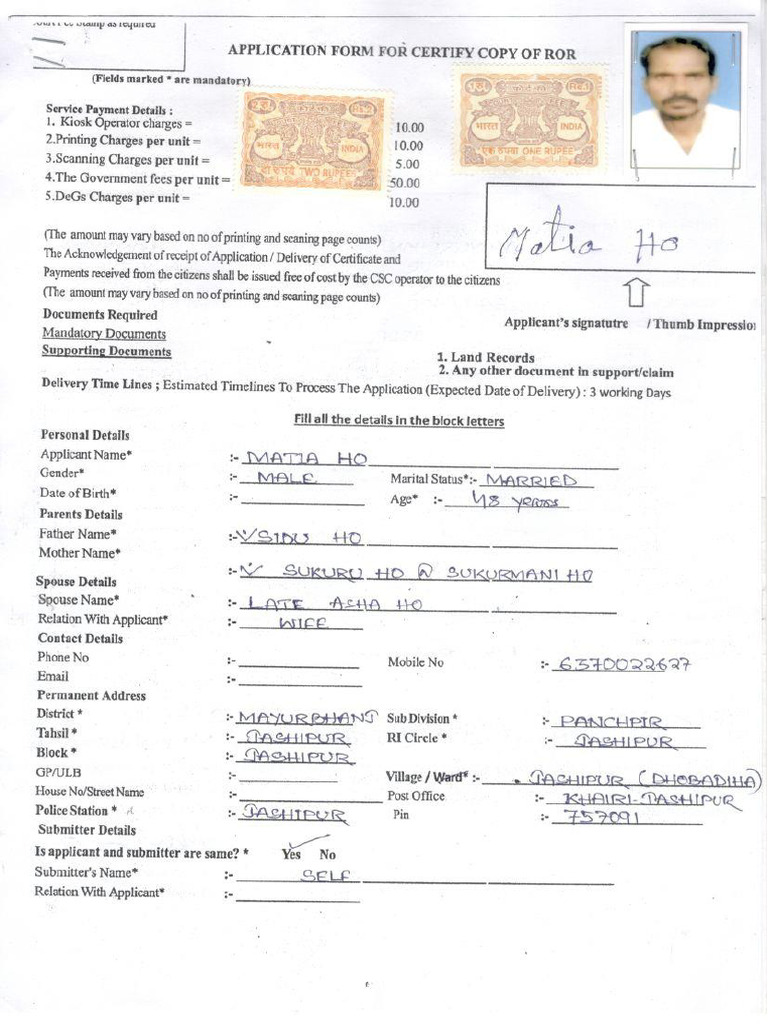 Stamp as required
APPLICATION FORM FOR CERTIFY COPY OF ROR
(Fields marked * are mandatory)
Service Payment Details :
1. Kiosk Operator charges = 10.00
2.Printing Charges per unit = 10.00
3.Scanning Charges per unit = 5.00
4.The Government fees per unit = 50.00
5.DeGs Charges per unit = 10.00
२ रु. Rs.2
भारत INDIA
दो रुपये TWO RUPEES
१ रु. Re.1
भारत INDIA
एक रुपया ONE RUPEE
Matia Ho
(The amount may vary based on no of printing and scaning page counts)
The Acknowledgement of receipt of Application / Delivery of Certificate and
Payments received from the citizens shall be issued free of cost by the CSC operator to the citizens
(The amount may vary based on no of printing and scaning page counts)
Documents Required
Applicant's signatutre / Thumb Impression
Mandatory Documents
Supporting Documents
1. Land Records
2. Any other document in support/claim
Delivery Time Lines ; Estimated Timelines To Process The Application (Expected Date of Delivery) : 3 working Days
Fill all the details in the block letters
Personal Details
Applicant Name* :- MATIA HO
Gender* :- MALE Marital Status*:- MARRIED
Date of Birth* :- Age* :- 48 years
Parents Details
Father Name* :- SIDU HO
Mother Name* :- SUKURU HO @ SUKURMANI HO
Spouse Details
Spouse Name* :- LATE ASHA HO
Relation With Applicant* :- WIFE
Contact Details
Phone No :- Mobile No :- 6370022627
Email :-
Permanent Address
District * :- MAYURBHANJ Sub Division * :- PANCHPIR
Tahsil * :- JASHIPUR RI Circle * :- JASHIPUR
Block * :- JASHIPUR
GP/ULB :- Village / Ward* :- JASHIPUR (DHOBADIHA)
House No/Street Name :- Post Office :- KHAIRI-JASHIPUR
Police Station * :- JASHIPUR Pin :- 757091
Submitter Details
Is applicant and submitter are same? * Yes No
Submitter's Name* :- SELF
Relation With Applicant* :-